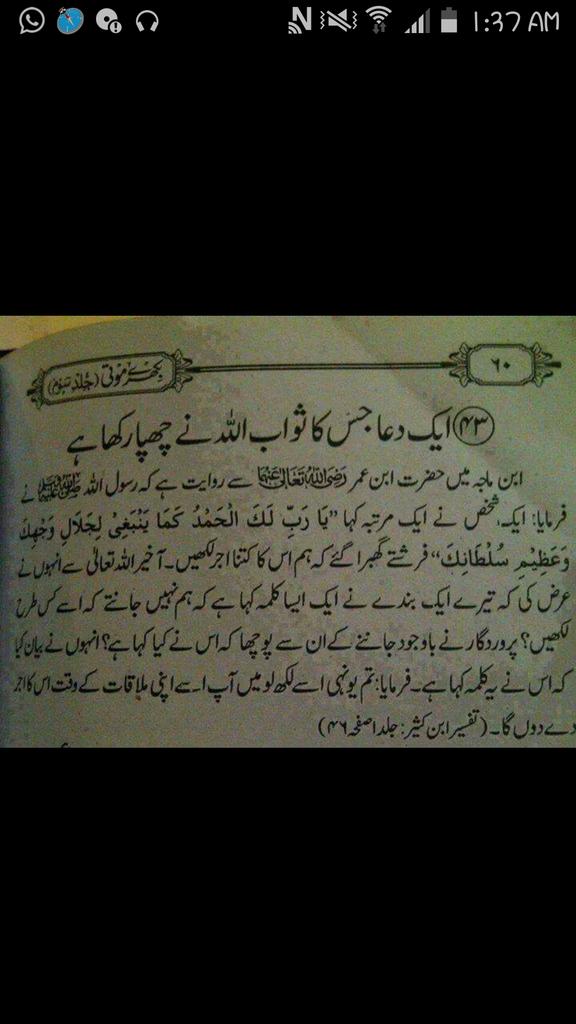 1:37 AM
۶۰
بکھرے موتی (جلد سوم)
۴۳ ایک دعا جس کا ثواب اللہ نے چھپا رکھا ہے
ابن ماجہ میں حضرت ابن عمر رَضِیَ اللہُ تَعَالٰی عَنْہُمَا سے روایت ہے کہ رسول اللہ صلی اللہ علیہ وسلم نے
فرمایا: ایک شخص نے ایک مرتبہ کہا ”یَا رَبِّ لَكَ الْحَمْدُ كَمَا یَنْۢبَغِیْ لِجَلَالِ وَجْهِكَ
وَعَظِیْمِ سُلْطَانِكَ“ فرشتے گھبرا گئے کہ ہم اس کا کتنا اجر لکھیں۔ آخیر اللہ تعالیٰ سے انہوں نے
عرض کی کہ تیرے ایک بندے نے ایک ایسا کلمہ کہا ہے کہ ہم نہیں جانتے کہ اسے کس طرح
لکھیں؟ پروردگار نے باوجود جاننے کے ان سے پوچھا کہ اس نے کیا کہا ہے؟ انہوں نے بیان کیا
کہ اس نے یہ کلمہ کہا ہے۔ فرمایا: تم یونہی اسے لکھ لو میں آپ اسے اپنی ملاقات کے وقت اس کا اجر
دے دوں گا۔ (تفسیر ابن کثیر: جلد۱ صفحہ ۴۶)